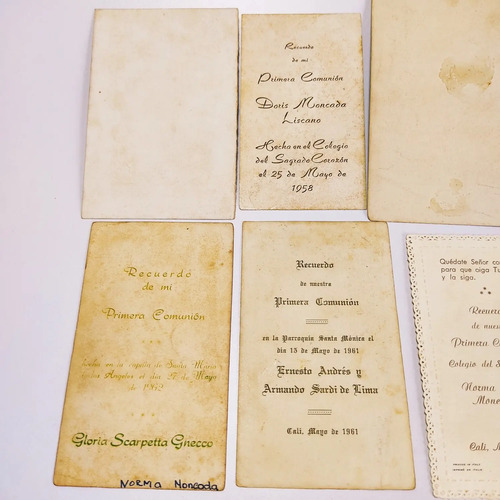 Recuerdo
de mi
Primera Comunión
Doris Moncada
Liscano
Hecha en el Colegio
del Sagrado Corazón
el 25 de Mayo de
1958
Recuerdo
de mi
Primera Comunión
hecha en la capilla de Santa María
de los Angeles el día de Mayo
de
Gloria Scarpetta Gnecco
NORMA Moncada
Recuerdo
de nuestra
Primera Comunión
en la Parroquia Santa Mónica el
día 15 de Mayo de 1961
Ernesto Andrés y
Armando Sardi de Lima
Cali, Mayo de 1961
Quédate Señor co
para que oiga Tu
y la siga.
Recuer
de nues
Primera C
Colegio del S
Norma
Monc
Cali, M
PRINTED IN ITALY